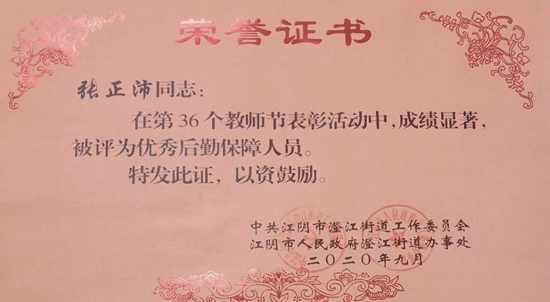 荣誉证书
张正沛同志：
在第36个教师节表彰活动中，成绩显著，
被评为优秀后勤保障人员。
特发此证，以资鼓励。
中共江阴市澄江街道工作委员会
江阴市人民政府澄江街道办事处
二〇二〇年九月